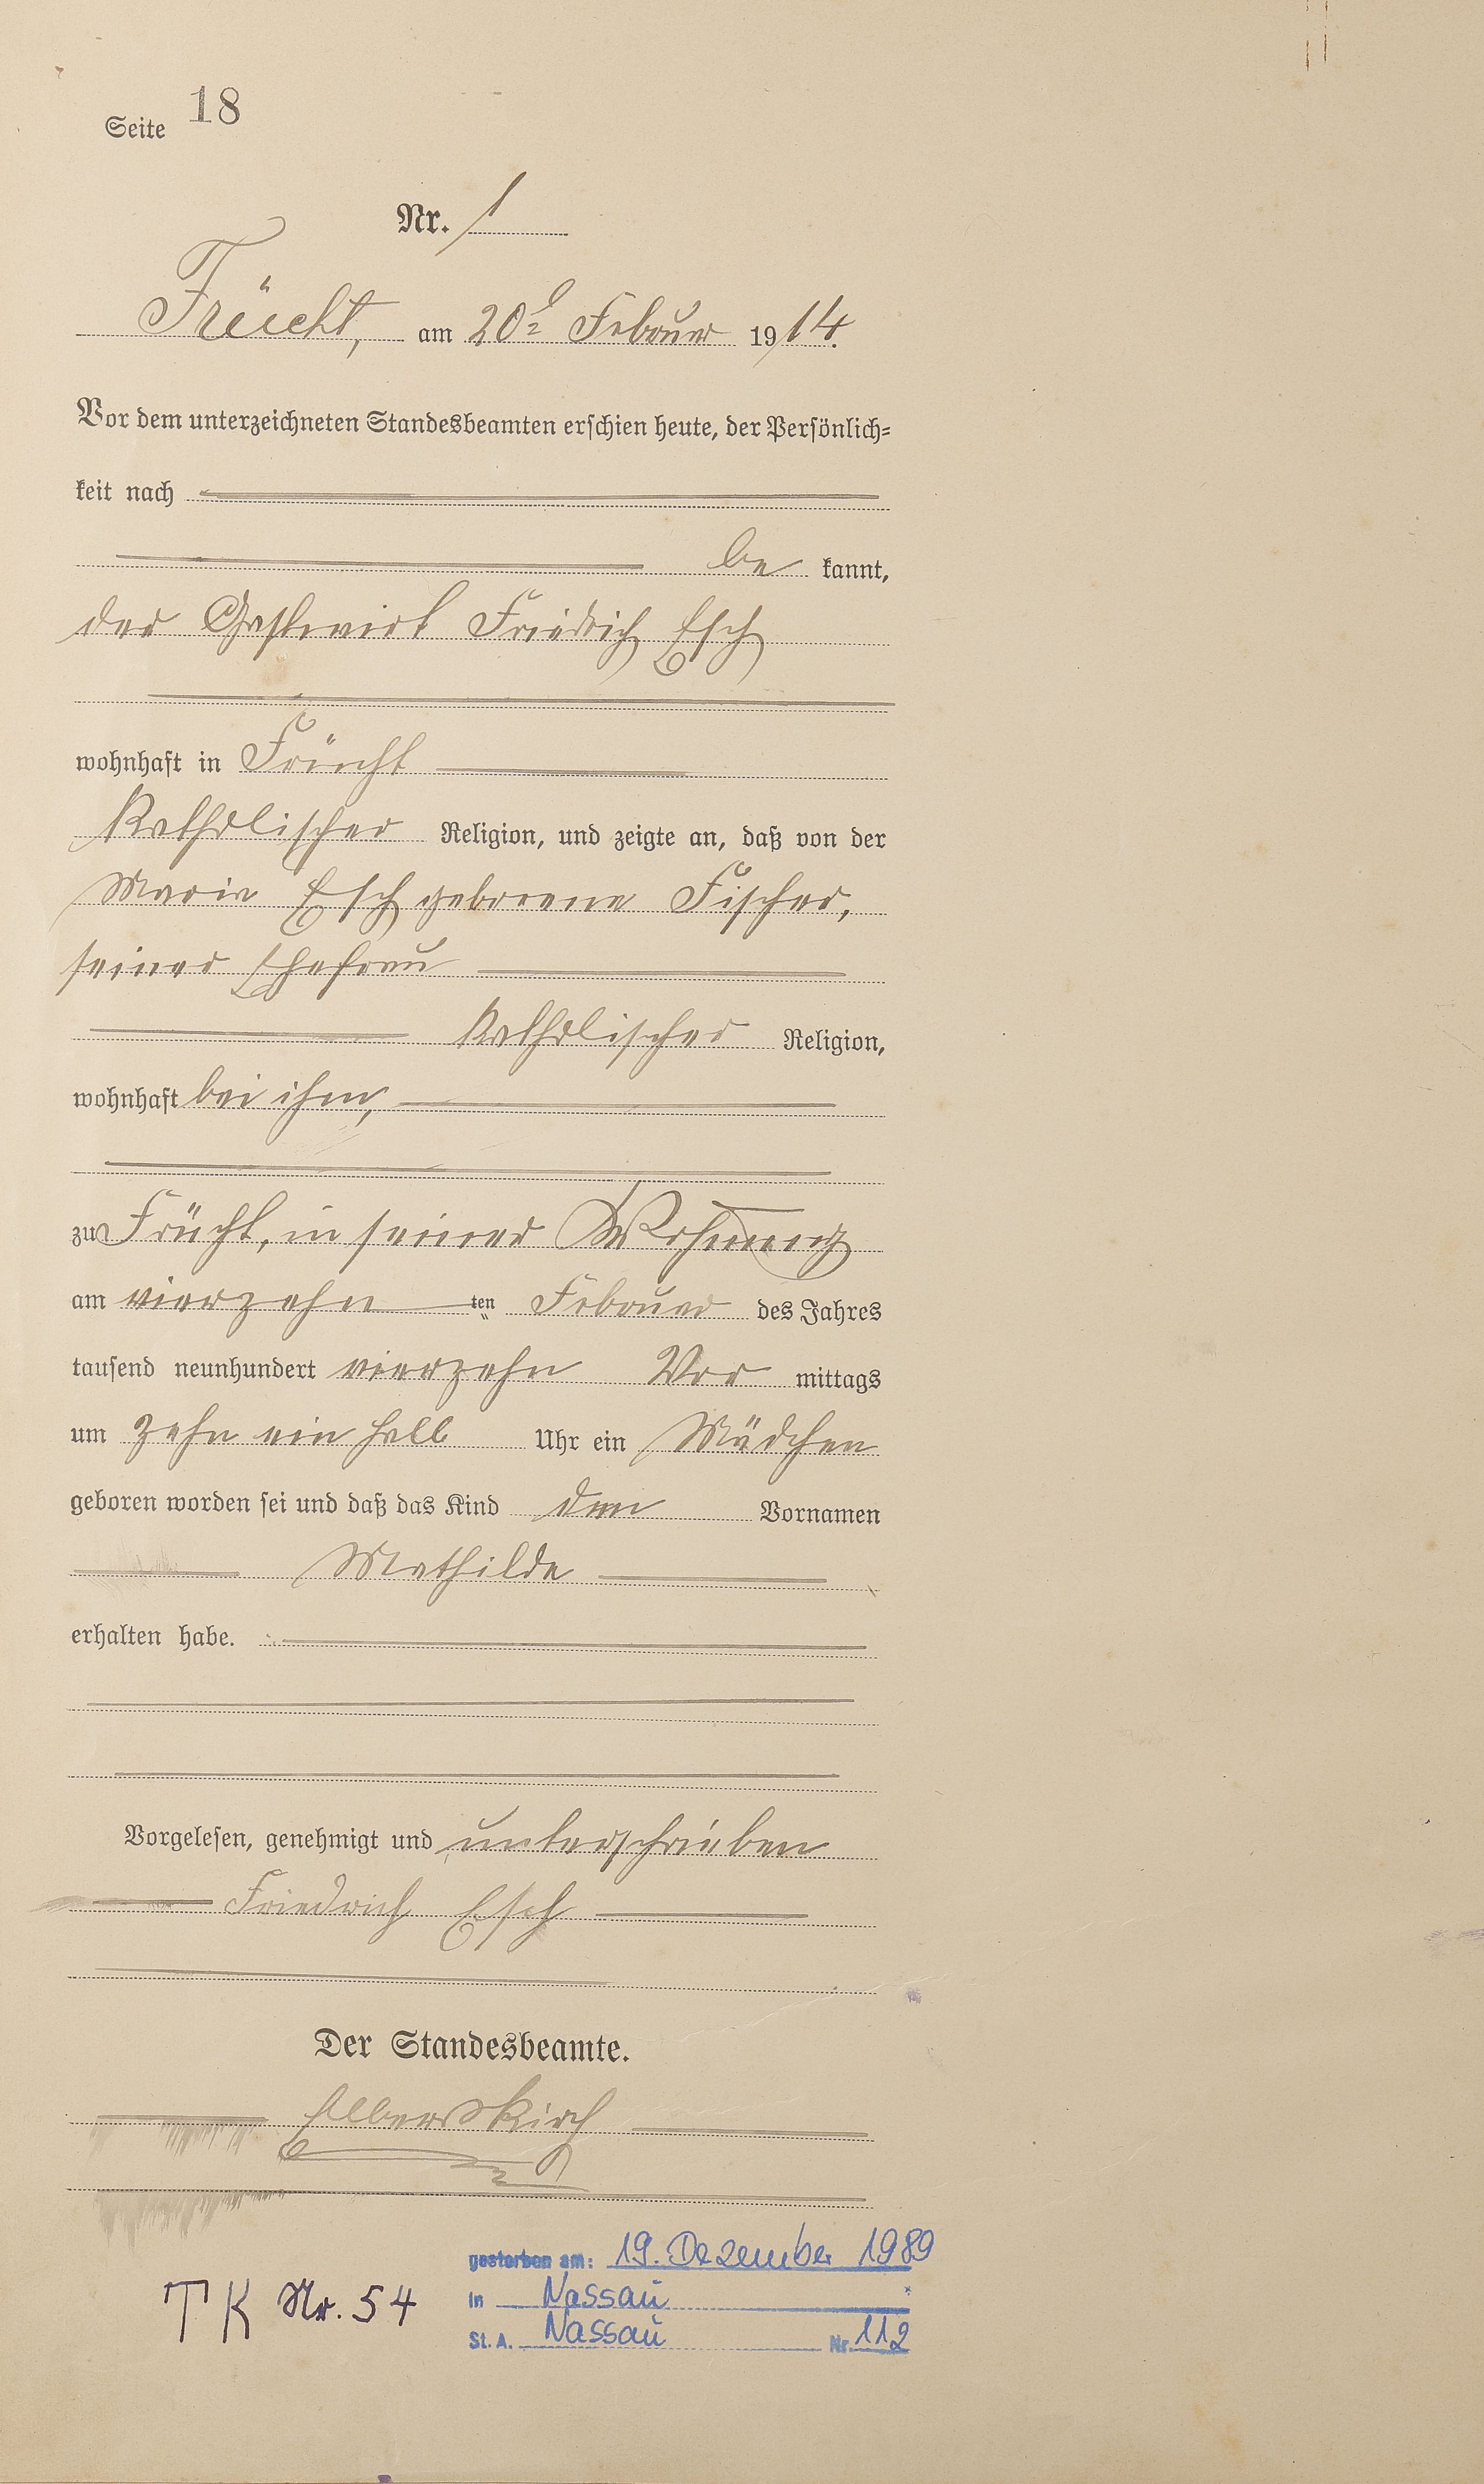 Seite 18
Nr. 1
Frücht, am 20ᵗ Februar 1914.
Vor dem unterzeichneten Standesbeamten erschien heute, der Persönlich=
keit nach
be kannt,
der Gastwirt Friedrich Esch
wohnhaft in Frücht
Katholischer Religion, und zeigte an, daß von der
Maria Esch geborene Fischer,
seiner Ehefrau
Katholischer Religion,
wohnhaft bei ihm,
zu Frücht, in seiner Wohnung
am vierzehn ten Februar des Jahres
tausend neunhundert vierzehn Vor mittags
um zehn ein halb Uhr ein Mädchen
geboren worden sei und daß das Kind den Vornamen
Mathilde
erhalten habe.
Vorgelesen, genehmigt und unterschrieben
Friedrich Esch
Der Standesbeamte.
Elberskirch
gestorben am: 19. Dezember 1989
TK Nr. 54 in Nassau
St. A. Nassau Nr. 112